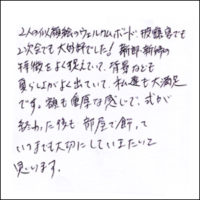 2人の似顔絵のウェルカムボード、披露宴でも
2次会でも大好評でした！新郎・新婦の
特徴をよく捉えていて、背景なども
真らしさがよく出ていて、私達も大満足
です。額も重厚な感じで、式が
終わった後も部屋で飾って
いつまでも大切にしていきたいと
思います。